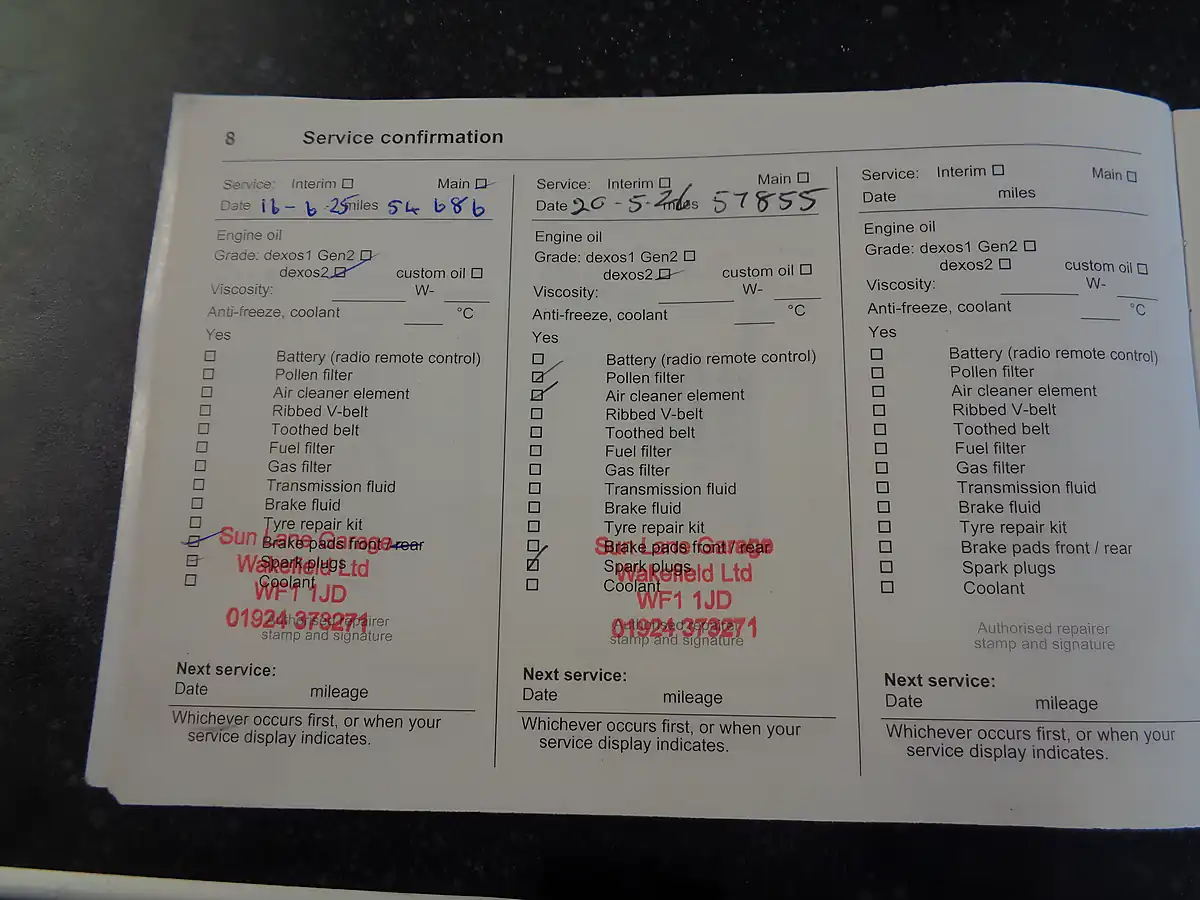 8 Service confirmation
Service: Interim Main
Date 16-6-25 miles 54 686
Engine oil
Grade: dexos1 Gen2
dexos2 custom oil
Viscosity: W-
Anti-freeze, coolant °C
Yes
Battery (radio remote control)
Pollen filter
Air cleaner element
Ribbed V-belt
Toothed belt
Fuel filter
Gas filter
Transmission fluid
Brake fluid
Tyre repair kit
Brake pads front / rear
Spark plugs
Coolant
Sun Lane Garage
Wakefield Ltd
WF1 1JD
01924 373271
Authorised repairer
stamp and signature
Next service:
Date mileage
Whichever occurs first, or when your
service display indicates.
Service: Interim Main
Date 20-5-26 miles 57855
Engine oil
Grade: dexos1 Gen2
dexos2 custom oil
Viscosity: W-
Anti-freeze, coolant °C
Yes
Battery (radio remote control)
Pollen filter
Air cleaner element
Ribbed V-belt
Toothed belt
Fuel filter
Gas filter
Transmission fluid
Brake fluid
Tyre repair kit
Brake pads front / rear
Spark plugs
Coolant
Sun Lane Garage
Wakefield Ltd
WF1 1JD
01924 373271
Authorised repairer
stamp and signature
Next service:
Date mileage
Whichever occurs first, or when your
service display indicates.
Service: Interim Main
Date miles
Engine oil
Grade: dexos1 Gen2
dexos2 custom oil
Viscosity: W-
Anti-freeze, coolant °C
Yes
Battery (radio remote control)
Pollen filter
Air cleaner element
Ribbed V-belt
Toothed belt
Fuel filter
Gas filter
Transmission fluid
Brake fluid
Tyre repair kit
Brake pads front / rear
Spark plugs
Coolant
Authorised repairer
stamp and signature
Next service:
Date mileage
Whichever occurs first, or when your
service display indicates.